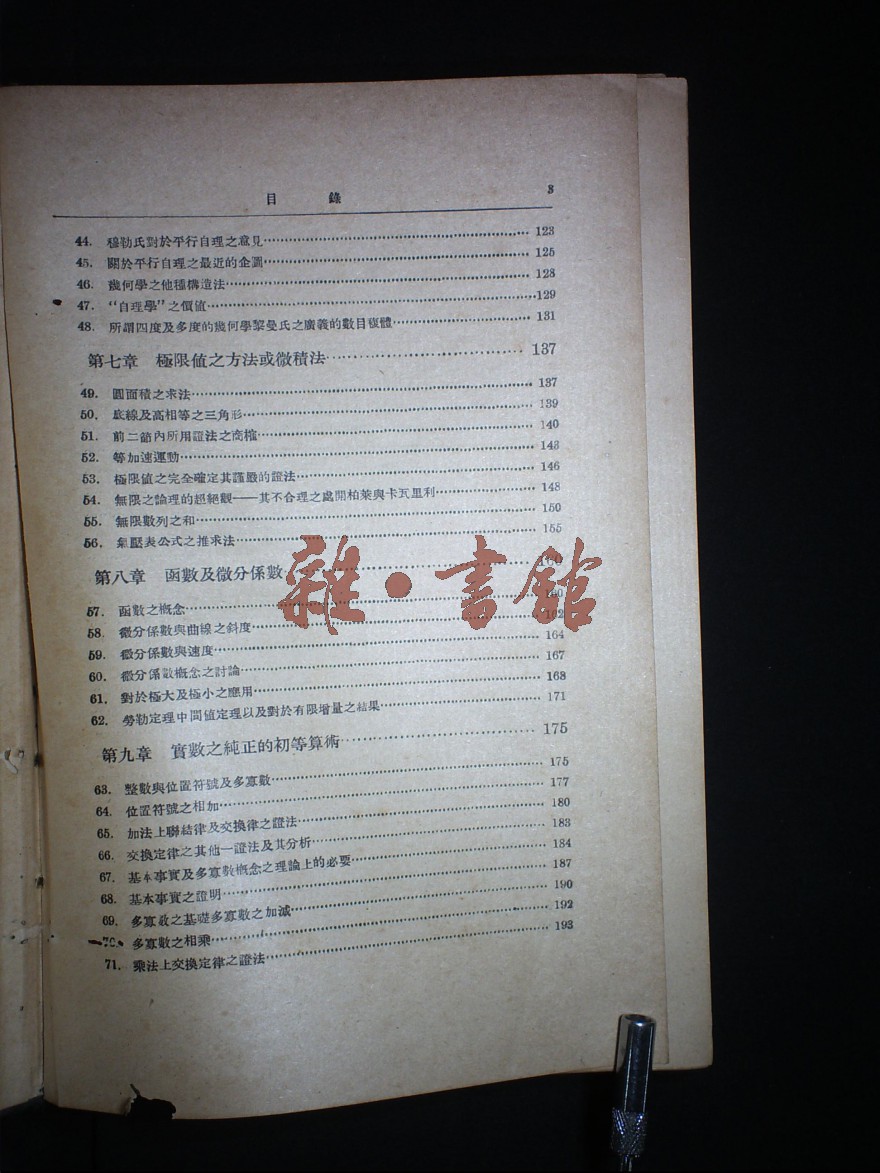 目 錄 3
44. 穆勒氏對於平行自理之意見 123
45. 關於平行自理之最近的企圖 125
46. 幾何學之他種構造法 128
47. “自理學”之價值 129
48. 所謂四度及多度的幾何學黎曼氏之廣義的數目複體 131
第七章 極限值之方法或微積法 137
49. 圓面積之求法 137
50. 底線及高相等之三角形 139
51. 前二節內所用證法之商榷 140
52. 等加速運動 143
53. 極限值之完全確定其謹嚴的證法 146
54. 無限之論理的超絕觀——其不合理之處開柏萊與卡瓦里利 148
55. 無限數列之和 150
56. 氣壓表公式之推求法 155
第八章 函數及微分係數 160
57. 函數之概念 160
58. 微分係數與曲線之斜度 162
59. 微分係數與速度 164
60. 微分係數概念之討論 167
61. 對於極大及極小之應用 168
62. 勞勒定理中間値定理以及對於有限增量之結果 171
第九章 實數之純正的初等算術 175
63. 整數與位置符號及多寡數 175
64. 位置符號之相加 177
65. 加法上聯結律及交換律之證法 180
66. 交換定律之其他一證法及其分析 183
67. 基本事實及多寡數概念之理論上的必要 184
68. 基本事實之證明 187
69. 多寡數之基礎多寡數之加減 190
70. 多寡數之相乘 192
71. 乘法上交換定律之證法 193
雜·書館